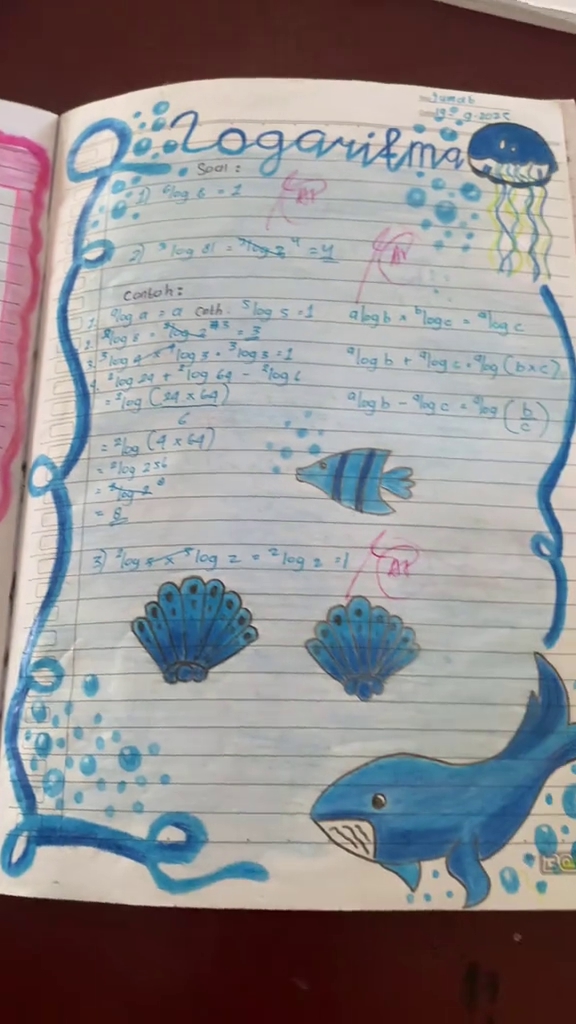 Jumat
19-9-2025
Logaritma
Soal :
1) ⁶log 6 = 1
2) ³log 81 = ³log 3⁴ = 4
Contoh :
1. ᵃlog a = a Coth. ⁵log 5 = 1
2. ²log 8 = ²log 2³ = 3
3. ³log 4 × ⁴log 3 = ³log 3 = 1
4. ²log 24 + ²log 64 - ²log 6
= ²log (24 × 64)
6
= ²log (4 × 64)
= ²log 256
= ²log 2⁸
= 8
ᵃlog b × ᵇlog c = ᵃlog c
ᵃlog b + ᵃlog c = ᵃlog (b×c)
ᵃlog b - ᵃlog c = ᵃlog (b/c)
3) ²log 5 × ⁵log 2 = ²log 2 = 1